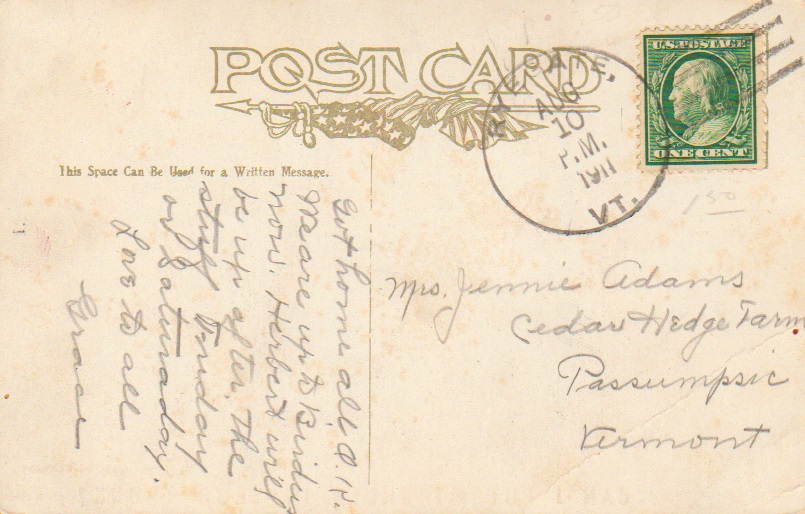 POST CARD
RYEGATE,
AUG
10
P.M.
1911
VT.
U.S. POSTAGE
ONE CENT
This Space Can Be Used for a Written Message.
Got home all O.K.
We are up to
now. Herbert will
be up after the
stuff Friday
or Saturday.
Love to all
Grace
150
Mrs. Jennie Adams
Cedar Hedge Farm
Passumpsic
Vermont